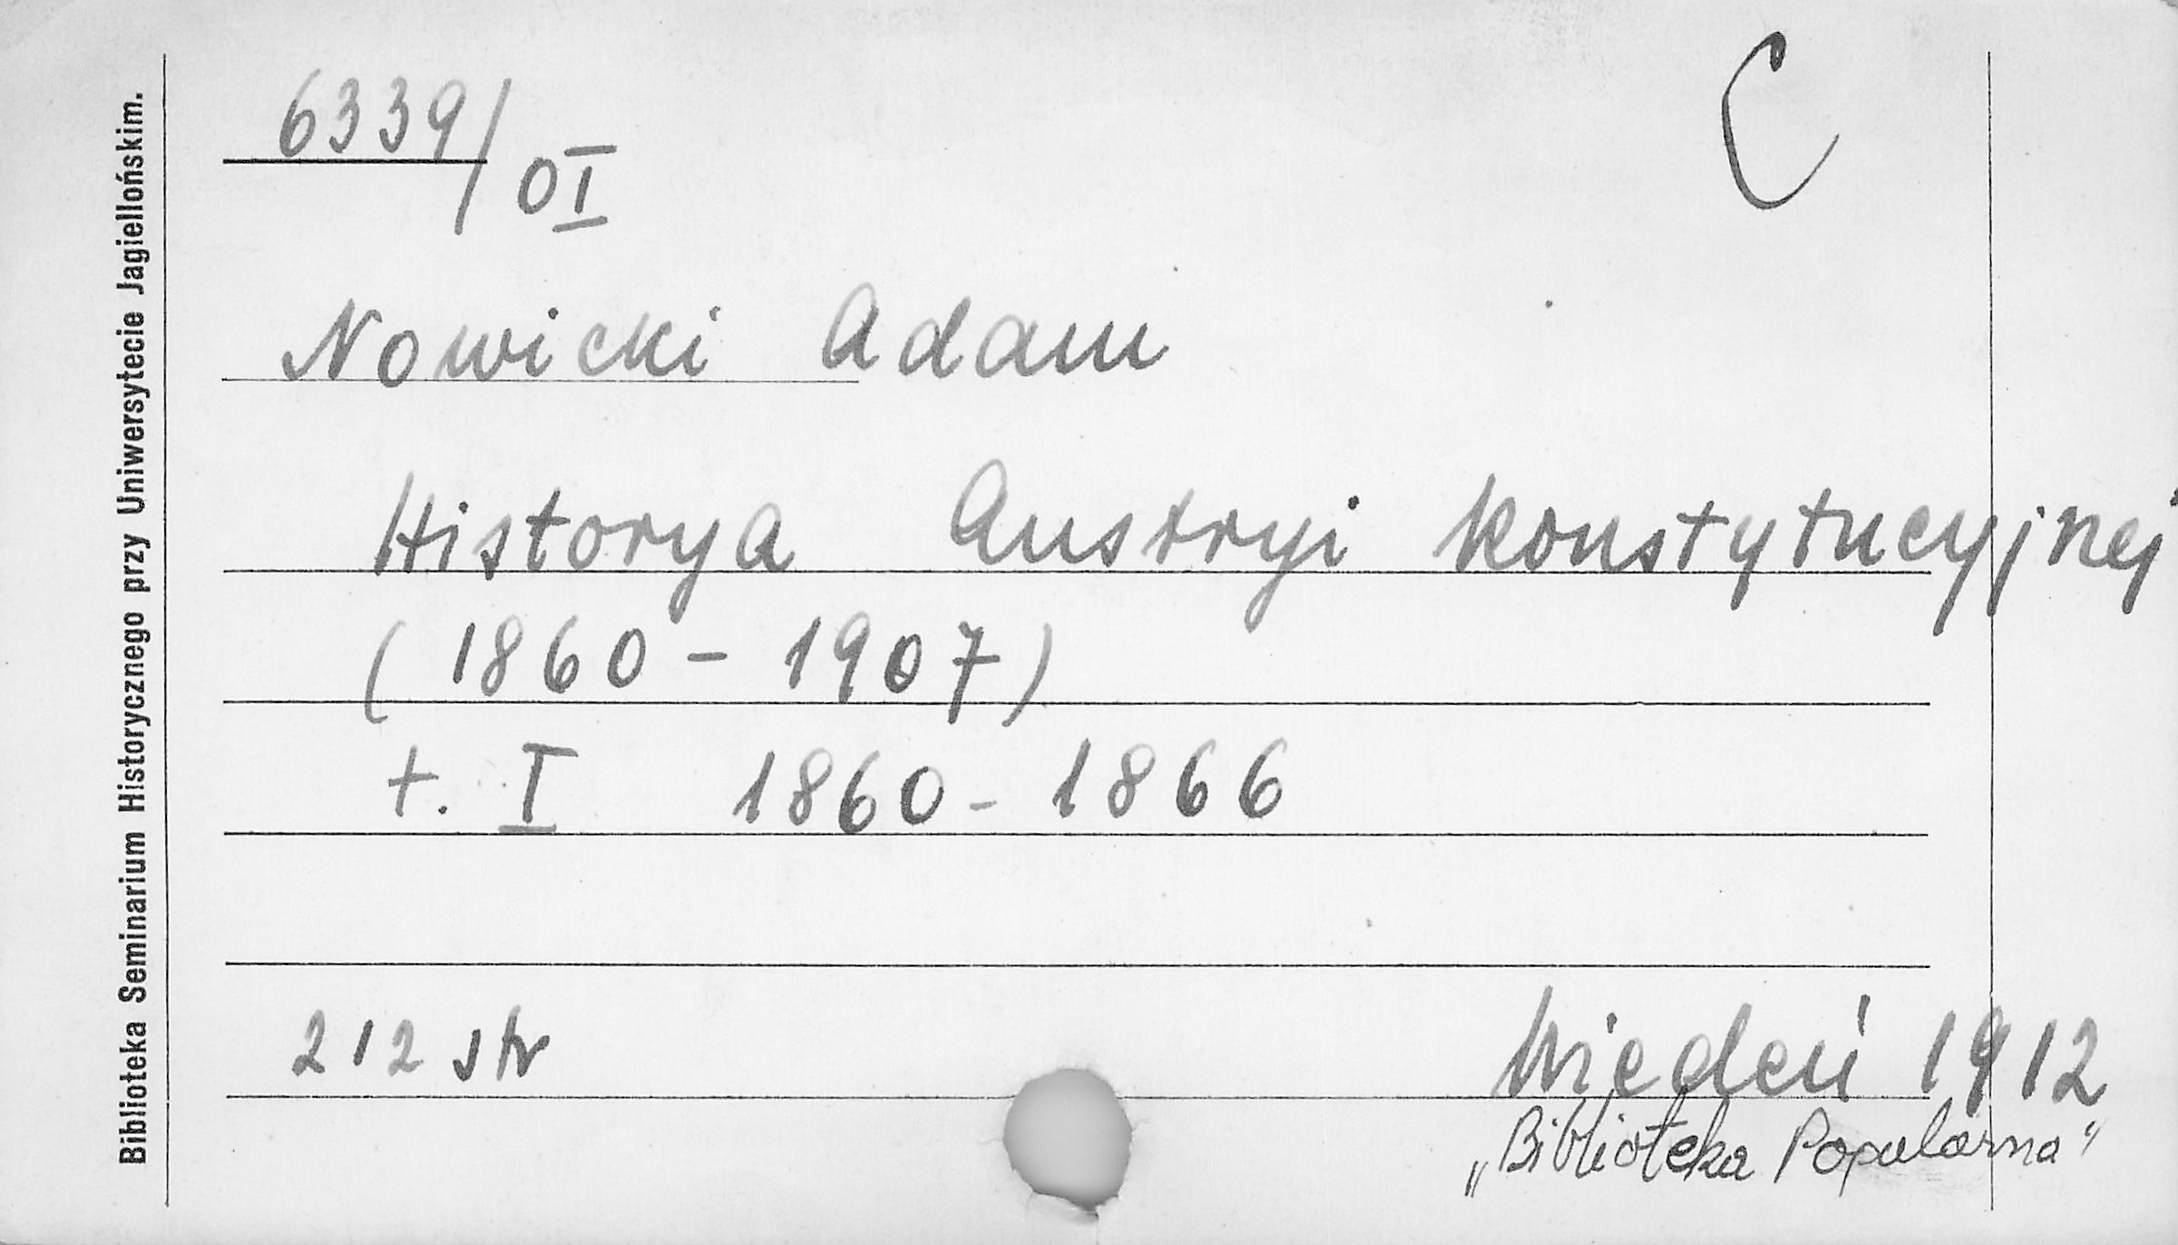 6339/OI
C
Nowicki Adam
Historya Austryi konstytucyjnej
(1860 - 1907)
t. I 1860 - 1866
212 str
Wiedeń 1912
„Biblioteka Popularna"
Biblioteka Seminarium Historycznego przy Uniwersytecie Jagiellońskim.